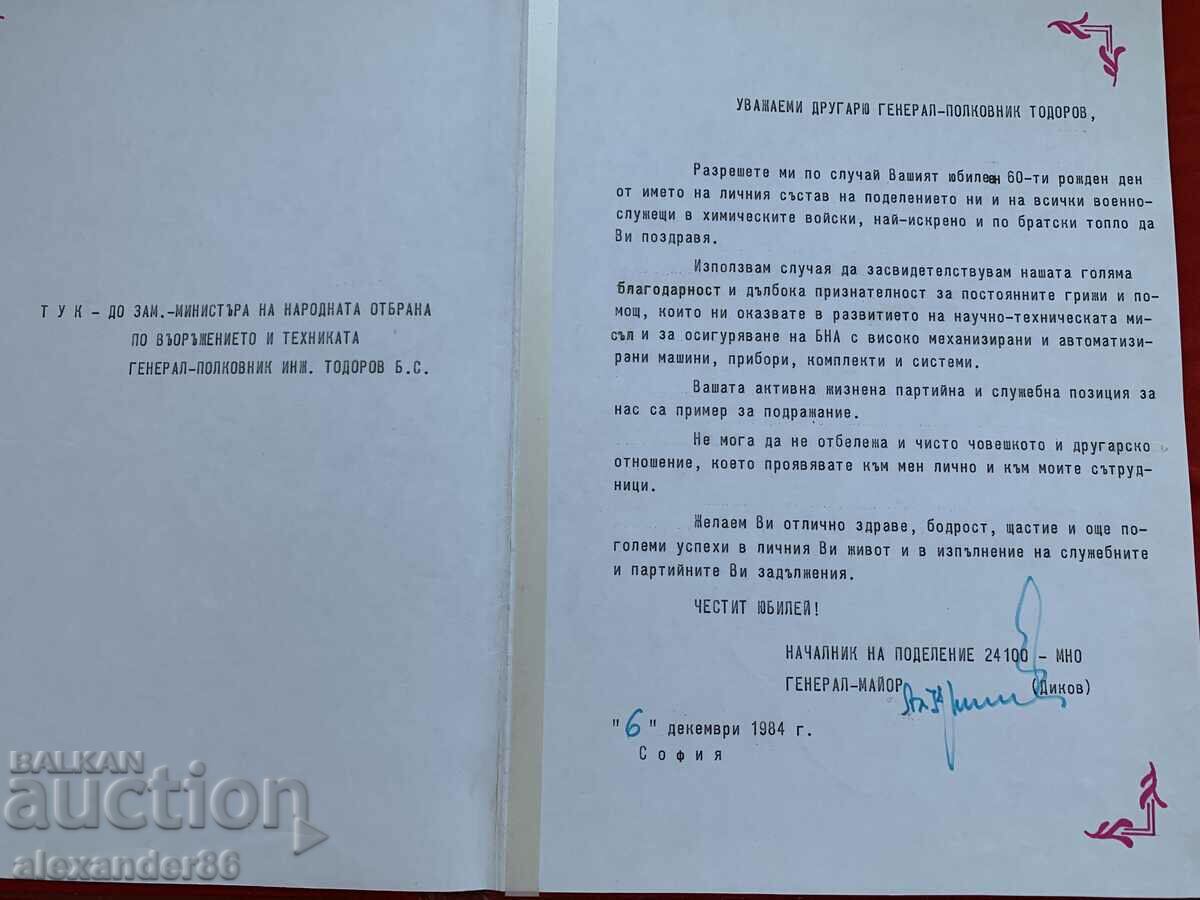 Т У К - ДО ЗАМ.-МИНИСТЪРА НА НАРОДНАТА ОТБРАНА
ПО ВЪОРЪЖЕНИЕТО И ТЕХНИКАТА
ГЕНЕРАЛ-ПОЛКОВНИК ИНЖ. ТОДОРОВ Б.С.
УВАЖАЕМИ ДРУГАРЮ ГЕНЕРАЛ-ПОЛКОВНИК ТОДОРОВ,
Разрешете ми по случай Вашият юбилеен 60-ти рожден ден
от името на личния състав на поделението ни и на всички военно-
служещи в химическите войски, най-искрено и по братски топло да
Ви поздравя.
Използвам случая да засвидетелствувам нашата голяма
благодарност и дълбока признателност за постоянните грижи и по-
мощ, които ни оказвате в развитието на научно-техническата ми-
съл и за осигуряване на БНА с високо механизирани и автоматизи-
рани машини, прибори, комплекти и системи.
Вашата активна жизнена партийна и служебна позиция за
нас са пример за подражание.
Не мога да не отбележа и чисто човешкото и другарско
отношение, което проявявате към мен лично и към моите сътруд-
ници.
Желаем Ви отлично здраве, бодрост, щастие и още по-
големи успехи в личния Ви живот и в изпълнение на служебните
и партийните Ви задължения.
ЧЕСТИТ ЮБИЛЕЙ!
НАЧАЛНИК НА ПОДЕЛЕНИЕ 24100 - МНО
ГЕНЕРАЛ-МАЙОР (Диков)
"6" декември 1984 г.
С о ф и я
BALKAN
auction
alexander86